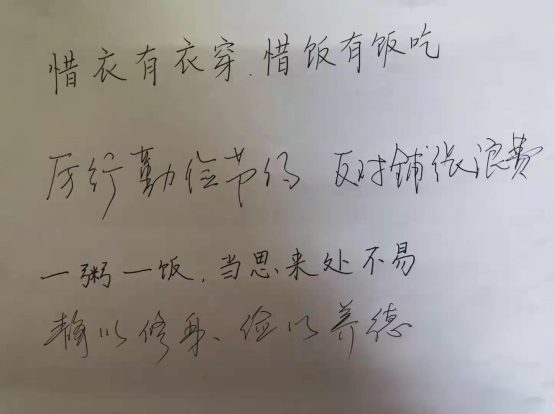 惜衣有衣穿.惜饭有饭吃
厉行勤俭节约 反对铺张浪费
一粥一饭,当思来处不易
静以修身、俭以养德